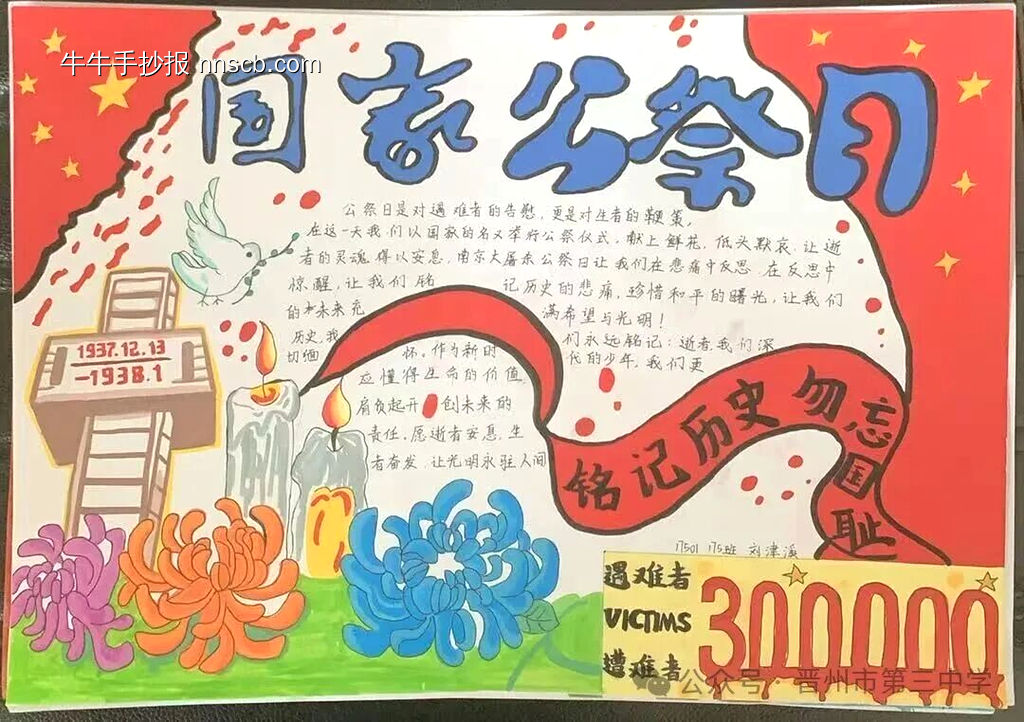 牛牛手抄报 nnscb.com
国家公祭日
公祭日是对遇难者的告慰，更是对生者的鞭策。
在这一天我们以国家的名义举行公祭仪式，献上鲜花，低头默哀，让逝
者的灵魂得以安息，南京大屠杀公祭日让我们在悲痛中反思，在反思中
惊醒，让我们铭记历史的悲痛，珍惜和平的曙光，让我们
的未来充满希望与光明！
历史，我们永远铭记：逝者我们深
切缅怀。作为新时代的少年，我们更
应懂得生命的价值，
肩负起开创未来的
责任。愿逝者安息，生
者奋发，让光明永驻人间
1937.12.13
-1938.1
铭记历史 勿忘国耻
17501 175班 刘津溪
遇难者
VICTIMS
遭难者
300000
公众号·晋州市第三中学